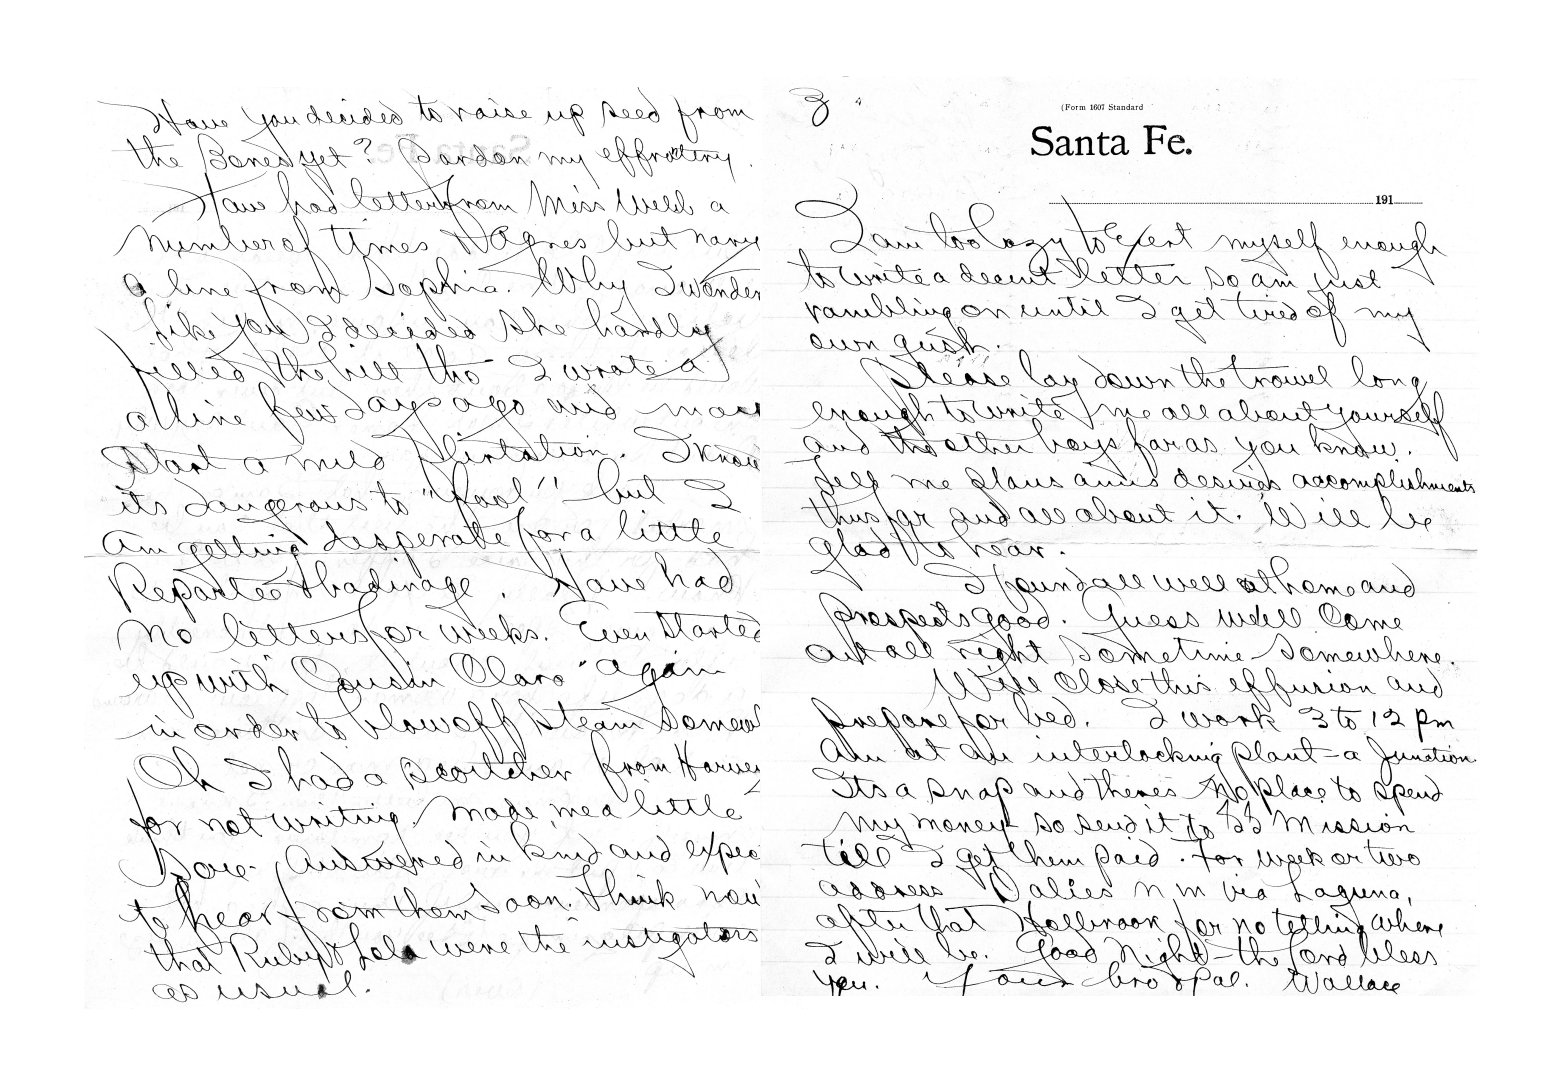 Have you decided to raise up seed from
the Bones yet? Pardon my effrontery.
Have had letter from Miss Webb a
number of times & Agnes but nary
a line from Sophia. Why I wonder
Like you I decided she hardly
filled the bill tho I wrote a
a line few days ago and may
start a mild flirtation. I know
its dangerous to "fool" but I
am getting desperate for a little
Repartee & badinage. Have had
no letters for weeks. Even started
up with "Cousin Clara" again
in order to blow off steam somew
Oh I had a scortcher from Harve
for not writing. Made me a little
sore. Answered in kind and expec
to hear from them soon. Think now
that Ruby & Lela were the instigators
as usual.
3
(Form 1607 Standard
Santa Fe.
191
I am too lazy to exert myself enough
to write a decent letter so am just
rambling on until I get tired of my
own gush.
Please lay down the trowel long
enough to write me all about yourself
and the other boys far as you know.
Tell me plans aims desires accomplishments
thus far and all about it. Will be
glad to hear.
I found all well at home and
prospects good. Guess we'll come
out all right sometime somewhere.
Will close this effusion and
prepare for bed. I work 3 to 12 pm
Am at an interlocking plant - a Junction
Its a snap and theres no place to spend
my money so send it to Mission
till I get them paid. For week or two
address Dalies N M via Laguna,
after that Holbrook for no telling where
I will be. Good Night - the Lord bless
you. Your bro & pal. Wallace